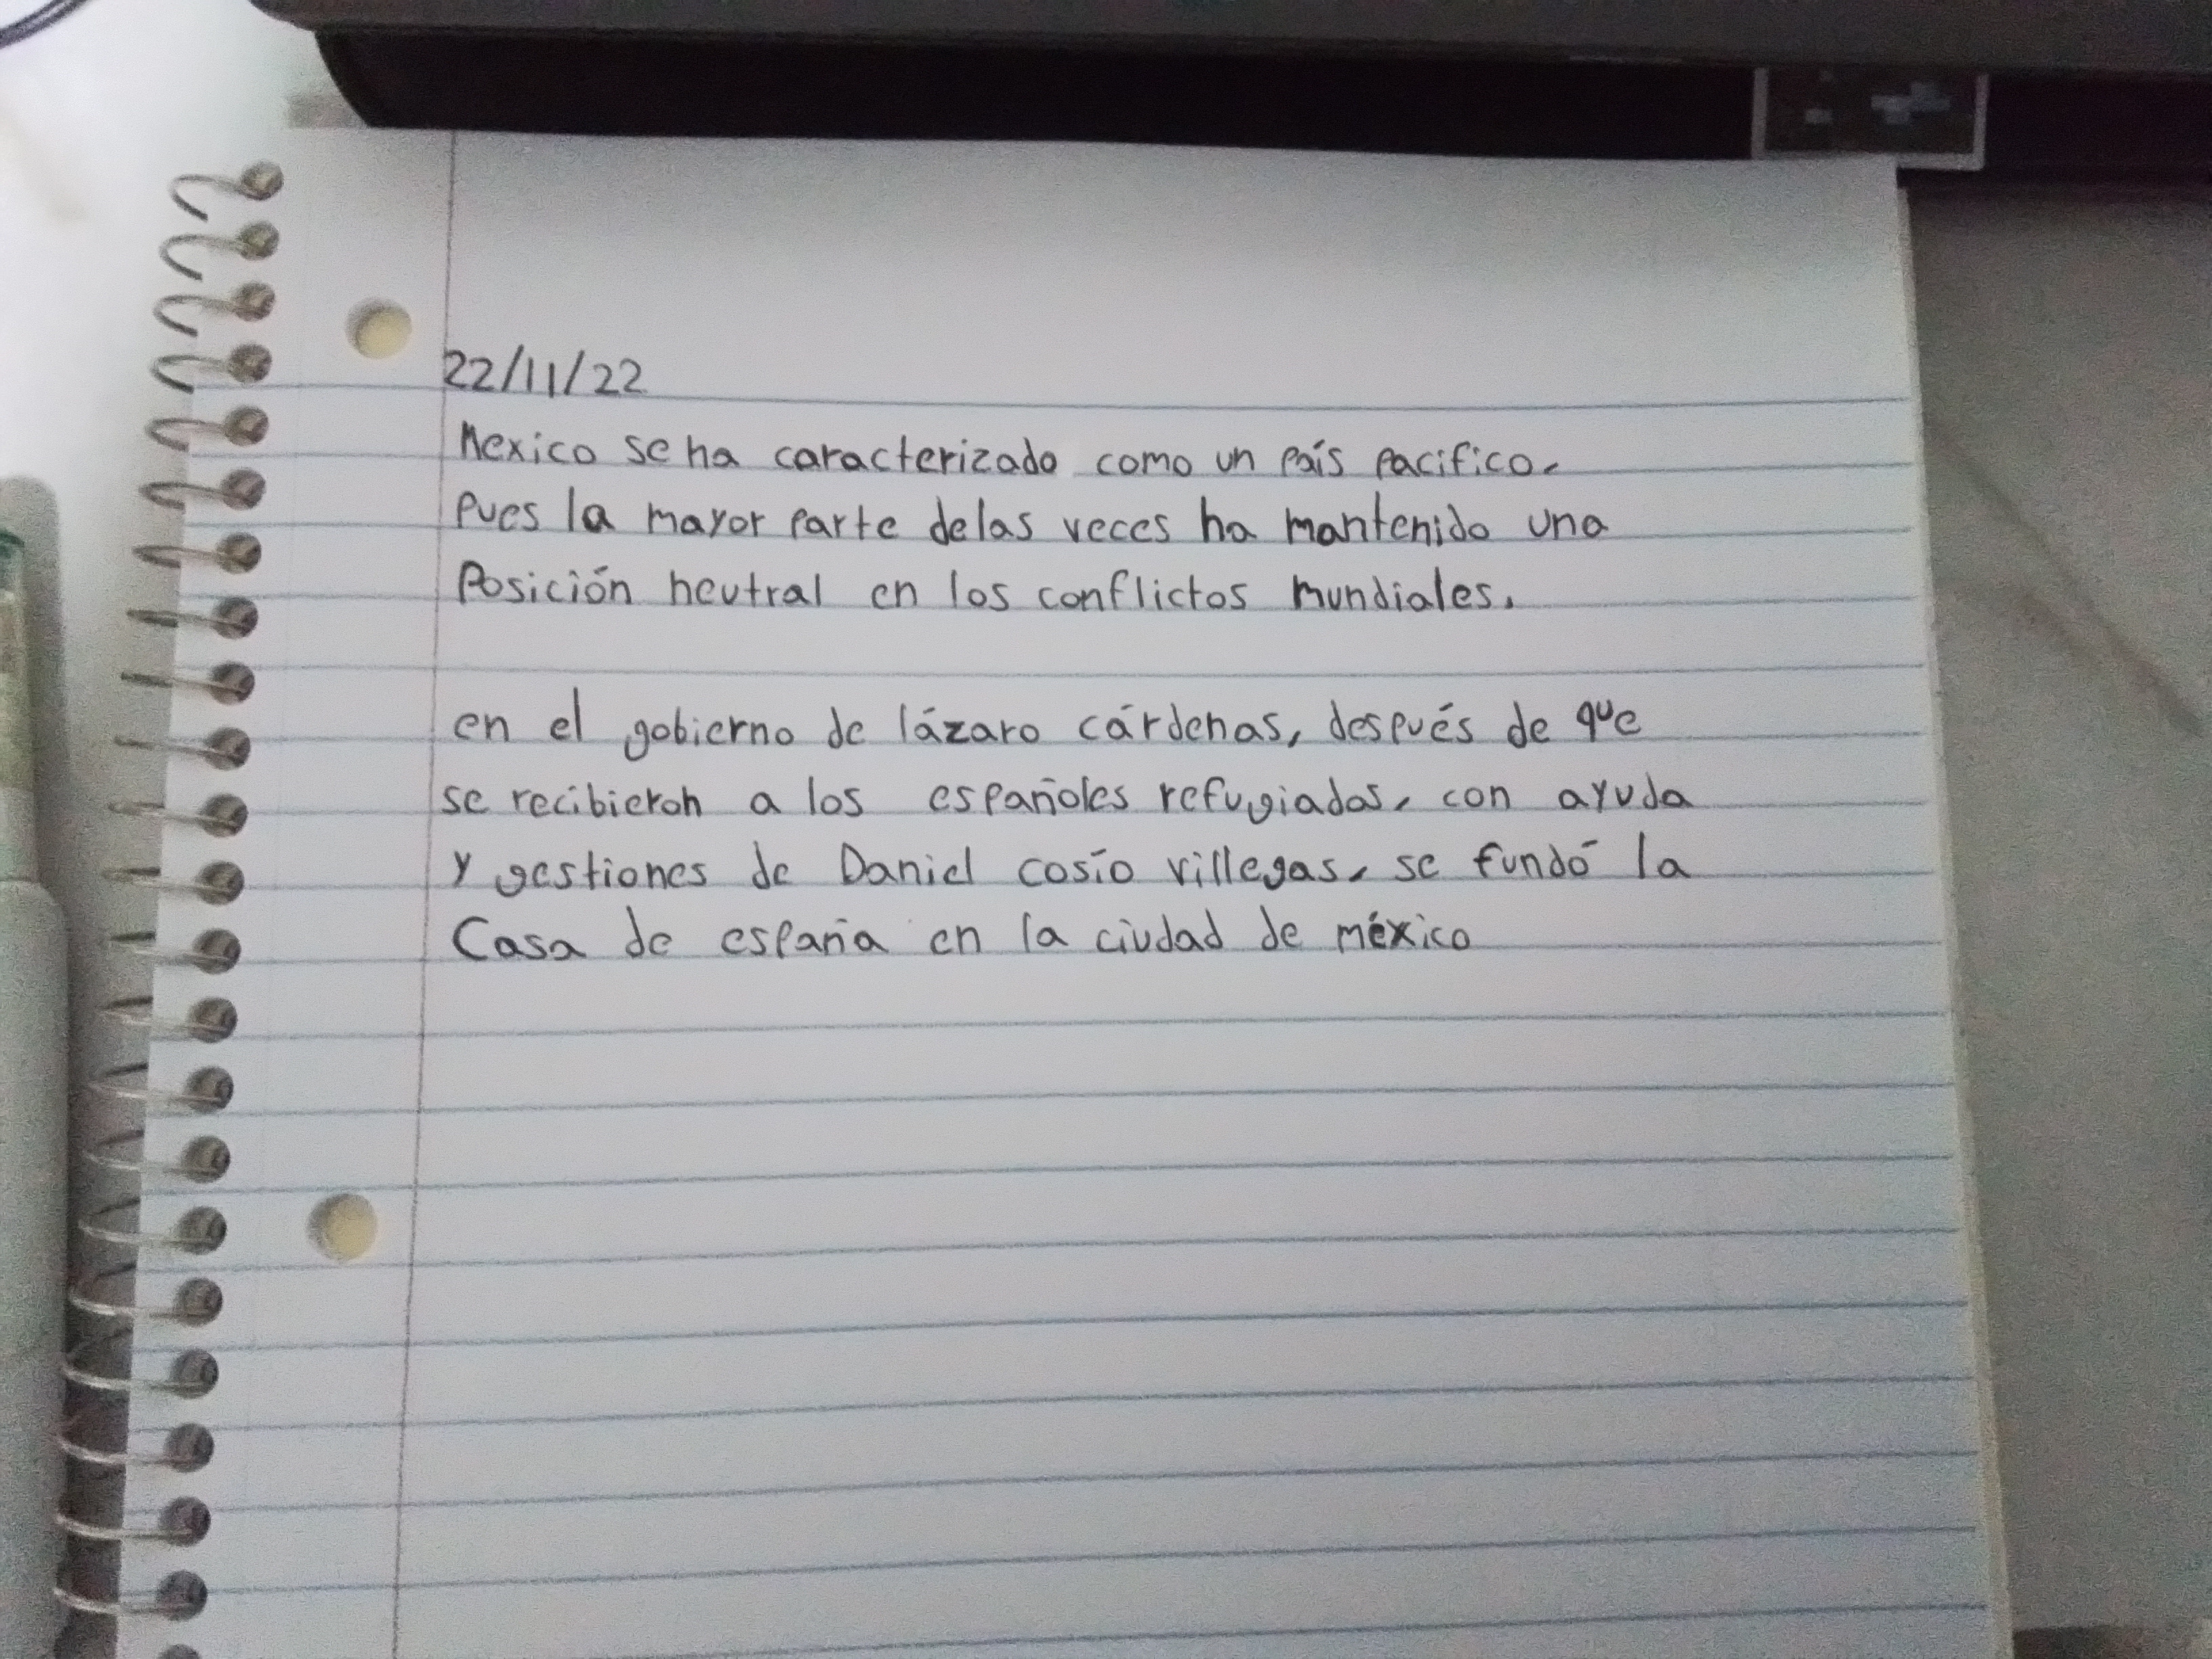 22/11/22
Mexico se ha caracterizado como un país pacifico,
pues la mayor parte delas veces ha mantenido una
Posición neutral en los conflictos mundiales.
en el gobierno de lázaro cárdenas, después de que
se recibieron a los españoles refugiados, con ayuda
y gestiones de Daniel cosío villegas, se fundó la
Casa de españa en la ciudad de méxico